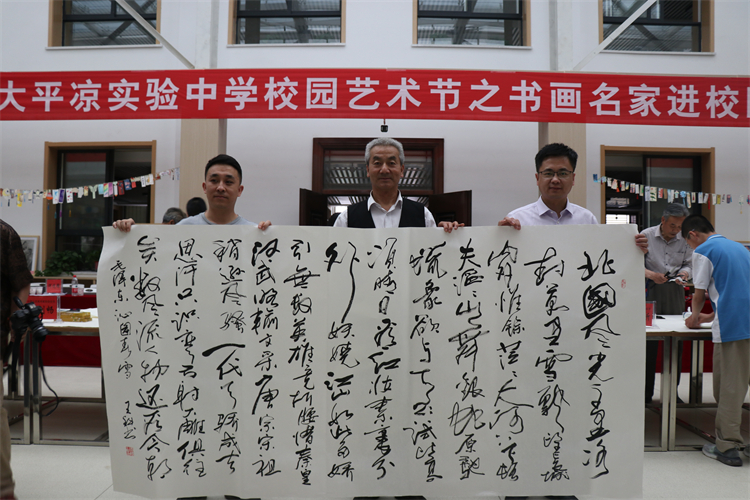 大平凉实验中学校园艺术节之书画名家进校园
北國风光千里冰
封萬里雪飘望长城
内外惟馀莽莽大河上下顿
失滔滔山舞银蛇原馳
蜡象欲与天公试比高
须晴日看红妆素裹分
外妖娆江山如此多娇
引無数英雄竞折腰惜秦皇
汉武略输文采唐宗宋祖
稍逊风骚一代天骄成吉
思汗只识弯弓射雕俱往
矣数风流人物还看今朝
毛泽东沁園春雪